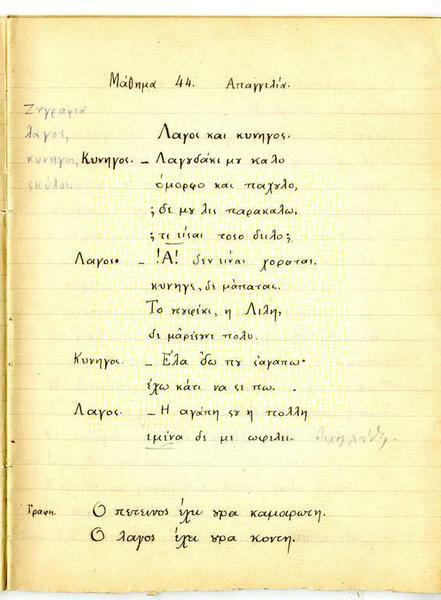 Μάθημα 44. Απαγγελία.
Ζωγραφιά
λαγος,
κυνηγος,
σκύλος.
Λαγος και κυνηγος.
Κυνηγος. – Λαγουδάκι μου καλο
όμορφο και παχουλο,
; δε μου λες παρακαλω,
; τι είσαι τοσο δειλο;
Λαγος. – !Α! δεν είναι χορατας.
κυνηγε, δε μ'απατας.
Το ντουφέκι, η Λιλη,
δε μ'αρέσουνε πολυ.
Κυνηγος. – Ελα 'δω που σ'αγαπω·
έχω κάτι να σε πω.
Λαγος. – Η αγάπη σου η πολλη
εμένα δε με ωφελει.
Γραφη. Ο πετεινος έχει ουρα καμαρωτη.
Ο λαγος έχει ουρα κοντη.